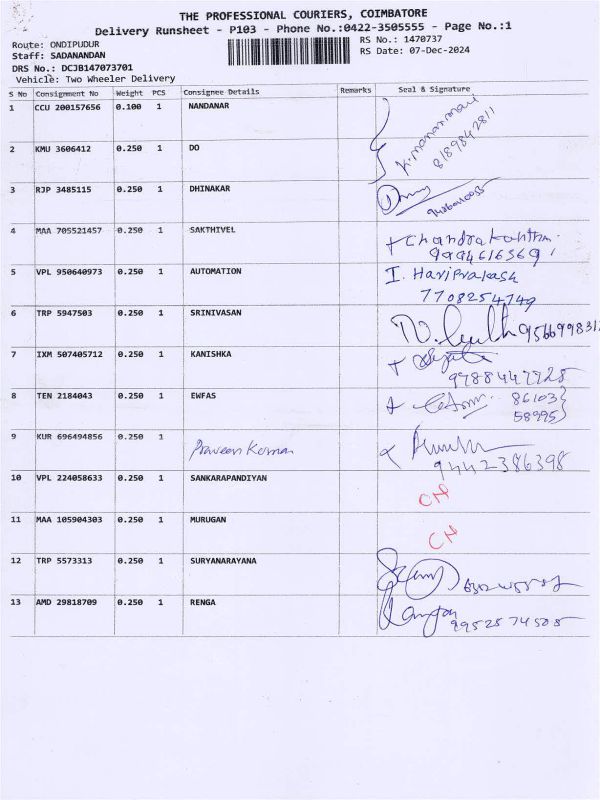 THE PROFESSIONAL COURIERS, COIMBATORE
Delivery Runsheet - P103 - Phone No.:0422-3505555 - Page No.:1
Route: ONDIPUDUR
RS No.: 1470737
Staff: SADANANDAN
RS Date: 07-Dec-2024
DRS No.: DCJB147073701
Vehicle: Two Wheeler Delivery
S No Consignment No Weight PCS Consignee Details Remarks Seal & Signature
1 CCU 200157656 0.100 1 NANDANAR
8189842811
2 KMU 3606412 0.250 1 DO
3 RJP 3485115 0.250 1 DHINAKAR
4 MAA 705521457 0.250 1 SAKTHIVEL
9994616569
5 VPL 950640973 0.250 1 AUTOMATION I. Hariprakash
7708254749
6 TRP 5947503 0.250 1 SRINIVASAN
7 IXM 507405712 0.250 1 KANISHKA
8 TEN 2184043 0.250 1 EWFAS 86103
58995
9 KUR 696494856 0.250 1 Praveen Kumar
9442386398
10 VPL 224058633 0.250 1 SANKARAPANDIYAN
CN
11 MAA 105904303 0.250 1 MURUGAN
CN
12 TRP 5573313 0.250 1 SURYANARAYANA
13 AMD 29818709 0.250 1 RENGA
9952574505